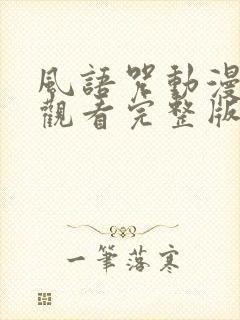 風語咒動漫
觀看完整版
一筆落寒